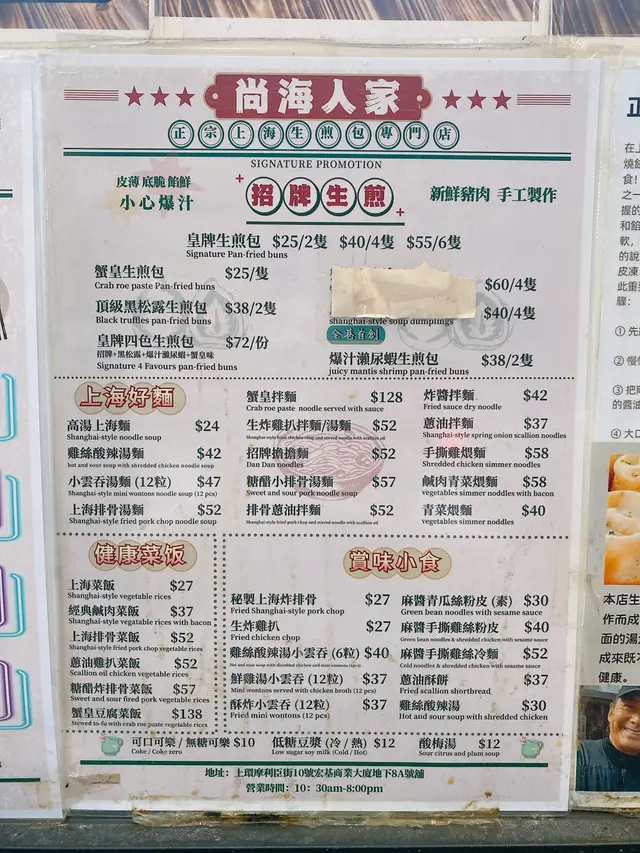 尚海人家
正宗上海生煎包專門店
SIGNATURE PROMOTION
皮薄 底脆 餡鮮
小心爆汁
招牌生煎
新鮮豬肉 手工製作
皇牌生煎包 $25/2隻 $40/4隻 $55/6隻
Signature Pan-fried buns
蟹皇生煎包 $25/隻
Crab roe paste Pan-fried buns
頂級黑松露生煎包 $38/2隻
Black truffles pan-fried buns
皇牌四色生煎包 $72/份
招牌+黑松露+爆汁瀨尿蝦+蟹皇味
Signature 4 Favours pan-fried buns
$60/4隻
$40/4隻
shanghai-style soup dumplings
全港首創
爆汁瀨尿蝦生煎包 $38/2隻
juicy mantis shrimp pan-fried buns
上海好麵
高湯上海麵 $24
Shanghai-style noodle soup
雞絲酸辣湯麵 $42
hot and sour soup with shredded chicken noodle soup
小雲吞湯麵 (12粒) $47
Shanghai-style mini wontons noodle soup (12 pcs)
上海排骨湯麵 $52
Shanghai-style fried pork chop noodle soup
蟹皇拌麵 $128
Crab roe paste noodle served with sauce
生炸雞扒拌麵/湯麵 $52
Shanghai-style fried chicken chop and stirred noodle with scallion oil
招牌擔擔麵 $52
Dan Dan noodles
糖醋小排骨湯麵 $57
Sweet and sour pork noodle soup
排骨蔥油拌麵 $52
Shanghai-style fried pork chop and stirred noodle with scallion oil
炸醬拌麵 $42
Fried sauce dry noodle
蔥油拌麵 $37
Shanghai-style spring onion scallion noodles
手撕雞煨麵 $58
Shredded chicken simmer noodles
鹹肉青菜煨麵 $58
vegetables simmer noddles with bacon
青菜煨麵 $40
vegetables simmer noddles
健康菜饭
上海菜飯 $27
Shanghai-style vegetable rices
經典鹹肉菜飯 $37
Shanghai-style vegetable rices with bacon
上海排骨菜飯 $52
Shanghai-style fried pork chop vegetable rices
蔥油雞扒菜飯 $52
Scallion oil chicken vegetable rices
糖醋炸排骨菜飯 $57
Sweet and sour fired pork vegetable rices
蟹皇豆腐菜飯 $138
Stewed to fu with crab roe paste vegetable rices
賞味小食
秘製上海炸排骨 $27
Fried Shanghai-style pork chop
生炸雞扒 $27
Fried chicken chop
雞絲酸辣湯小雲吞 (6粒) $40
Hot and sour soup with shredded chicken and mini wontons (6pcs)
鮮雞湯小雲吞 (12粒) $37
Mini wontons served with chicken broth (12 pcs)
酥炸小雲吞 (12粒) $37
Fried mini wontons (12 pcs)
麻醬青瓜絲粉皮 (素) $30
Green bean noodles with sesame sauce
麻醬手撕雞絲粉皮 $40
Green bean noodles & shredded chicken with sesame sauce
麻醬手撕雞絲冷麵 $52
Cold noodles & shredded chicken with sesame sauce
蔥油酥餅 $37
Fried scallion shortbread
雞絲酸辣湯 $30
Hot and sour soup with shredded chicken
可口可樂 / 無糖可樂 $10
Coke / Coke zero
低糖豆漿 (冷 / 熱) $12
Low sugar soy milk (Cold / Hot)
酸梅湯 $12
Sour citrus and plum soup
地址：上環摩利臣街10號宏基商業大廈地下8A號舖
營業時間：10：30am-8:00pm
正
在上
燒餅
食！
之一
握的
和餡
軟，
的說
皮凍
此重
驟：
① 先
② 慢
③ 把
的醬
④ 大
本店生
作而成
面的湯
成來既
健康。